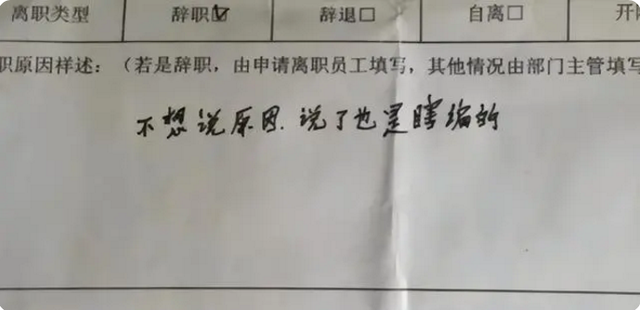 离职类型 辞职☑ 辞退☐ 自离☐ 开
职原因祥述：（若是辞职，由申请离职员工填写，其他情况由部门主管填写
不想说原因.说了也是瞎编的